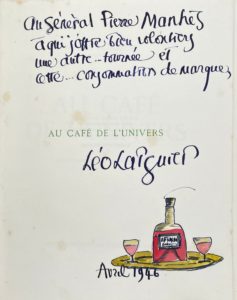 au Général Pierre Manhès
à qui j'offre bien volontiers
une autre... tournée et
cette... consommation de marque,
AU CAFÉ DE L'UNIVERS
Léo Larguier
Avril 1946